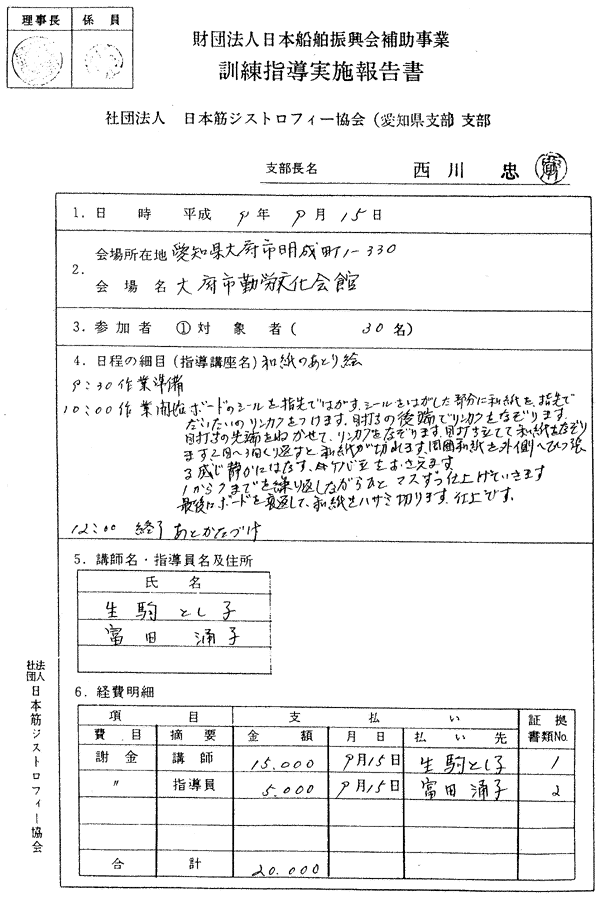 理事長 係員
財団法人日本船舶振興会補助事業
訓練指導実施報告書
社団法人 日本筋ジストロフィー協会(愛知県支部)支部
支部長名 西川 忠
1.日 時 平成 9年 9月15日
2.
会場所在地 愛知県大府市明成町1-330
会場名 大府市勤労文化会館
3.参加者 ①対象者( 30名)
4.日程の細目(指導講座名)和紙のあとり絵
9:30 作業準備
10:00 作業開始 ボードのシールを指先ではがす。シールをはがした部分に和紙を、指先で
だいたいのリンカクをつけます。目打ちの後端でリンカクをなぞります。
目打ちの先端をねかせて、リンカクをなぞります。目打ち立てて和紙をなぞり
ます2回~3回くり返すと和紙が切れます。周囲和紙を外側へひっ張
る感じ静かにはなす。をおさえます
1から7までを繰り返しながらあと マスずつ仕上げていきます
最後にボードを裏返して、和紙をハサミ切ります。仕上です。
12:00 終了 あとかたづけ
5.講師名・指導員名及住所
氏名
生駒とし子
富田 涌子
6.経費明細
項目 支払い 証拠書類No.
費目 摘要 金額 月日 払い先
謝金 講師 15.000 9月15日 生駒とし子 1
〃 指導員 5.000 9月15日 富田 涌子 2
合計 20.000
社団法人 日本筋ジストロフィー協会